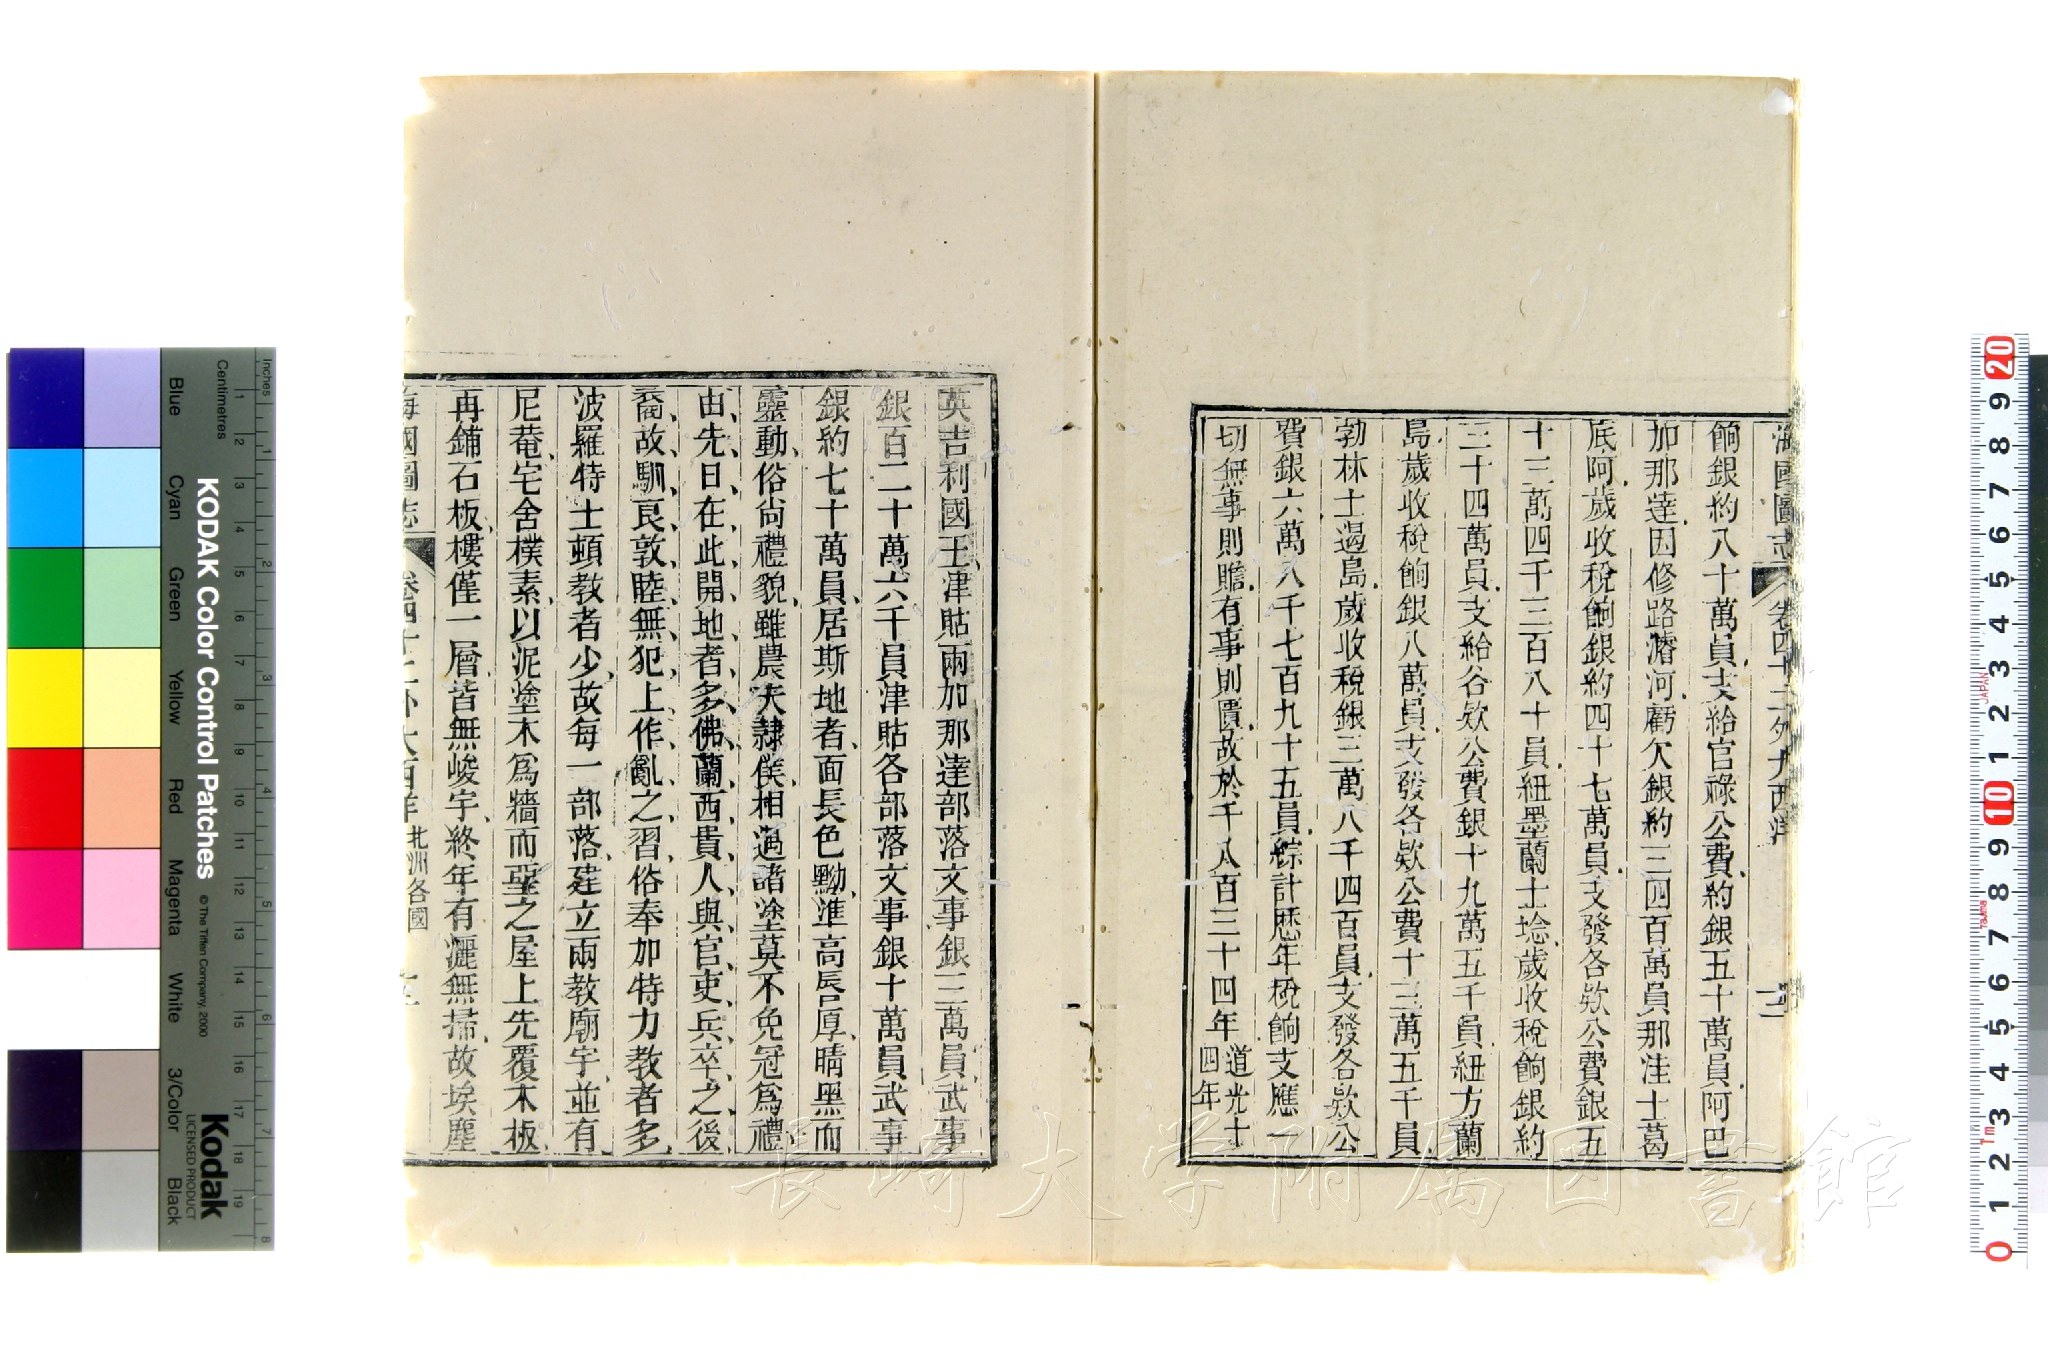 海國圖志 卷四十二 外大西洋
餉銀約八十萬員支給官祿公費約銀五十萬員阿巴
加那達因修路濬河虧欠銀約三四百萬員那洼士葛
底阿歲收稅餉銀約四十七萬員支發各欵公費銀五
十三萬四千三百八十員紐墨蘭士埝歲收稅餉銀約
三十四萬員支給谷欵公費銀十九萬五千員紐方蘭
島歲收稅餉銀八萬員支發各欵公費十三萬五千員
勃林士過島歲收稅銀三萬八千四百員支發各欵公
費銀六萬八千七百九十五員綜計歷年稅餉支應一
切無事則贍有事則匱故於千八百三十四年道光十
四年
英吉利國王津貼兩加那達部落文事銀三萬員武事
銀百二十萬六千員津貼各部落文事銀十萬員武事
銀約七十萬員居斯地者面長色黝準高唇厚睛黑而
靈動俗尚禮貌雖農夫隸僕相過諸塗莫不免冠爲禮
由先日在此開地者多佛蘭西貴人與官吏兵卒之後
裔故馴良敦睦無犯上作亂之習俗奉加特力教者多
波羅特士頓教者少故每一部落建立兩教廟宇並有
尼菴宅舍樸素以泥塗木爲牆而堊之屋上先覆木板
再鋪石板樓僅一層皆無峻宇終年有灑無掃故埃塵
海國圖志 卷四十二 外大西洋 北洲各國
KODAK Color Control Patches
© The Tiffen Company, 2000
Kodak
LICENSED PRODUCT
Inches
Centimetres
Blue
Cyan
Green
Yellow
Red
Magenta
White
3/Color
Black
長崎大学附属図書館